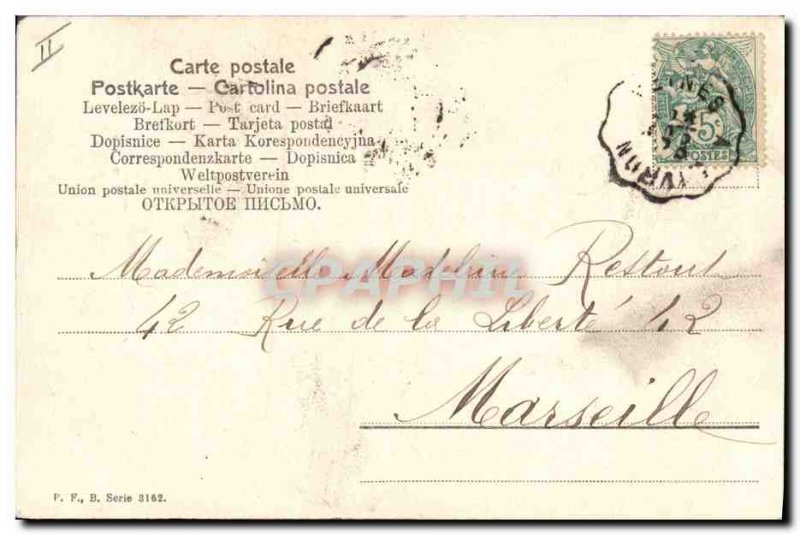 II
Carte postale
Postkarte — Cartolina postale
Levelező-Lap — Post card — Briefkaart
Brefkort — Tarjeta postal
Dopisnice — Karta Korespondencyjna
Correspondenzkarte — Dopisnica
Weltpostverein
Union postale universelle — Unione postale universale
ОТКРЫТОЕ ПИСЬМО.
5c
POSTES
Mademoiselle Madeleine Restout
42 Rue de la Liberté 42
Marseille
CPAPHIL
P. F., B. Serie 3162.